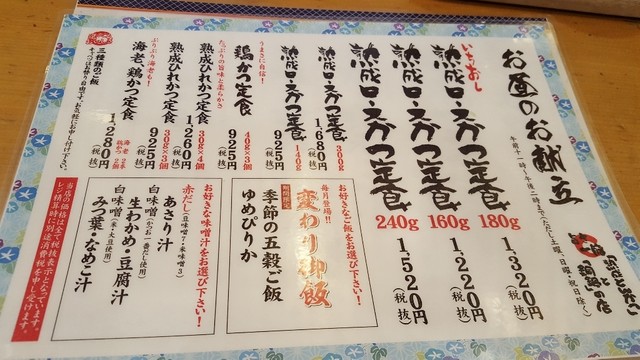 お昼のお献立
午前十一時~午後二時まで(ただし、土曜、日曜、祝日除く)
いちおし
熟成ロースかつ定食 180g 1,320円(税抜)
熟成ロースかつ定食 160g 1,220円(税抜)
熟成ロースかつ定食 240g 1,520円(税抜)
熟成ロースかつ定食 300g 1,680円(税抜)
熟成ロースかつ定食 140g 925円(税抜)
うまさに自信!
鶏かつ定食 40g×3個 925円(税抜)
たっぷりの旨味と柔らかさ
熟成ひれかつ定食 30g×4個 1,260円(税抜)
熟成ひれかつ定食 30g×3個 925円(税抜)
ぷりぷり海老も!
海老、鶏かつ定食 925円(税抜)
1,280円(税抜)
三種類のご飯
お好きなご飯をお選び下さい!
毎月登場!!
変わり御飯
季節の五穀ご飯
ゆめぴりか
お好きな味噌汁をお選び下さい!
赤だし(豆味噌7・米味噌3)
あさり汁
白味噌(かつお一番だし使用)
生わかめ・豆腐汁
白味噌(米・大豆使用)
みつ葉・なめこ汁
当店の価格は全て税抜表示となっています。
レジ精算時に別途消費税を申し受けます。